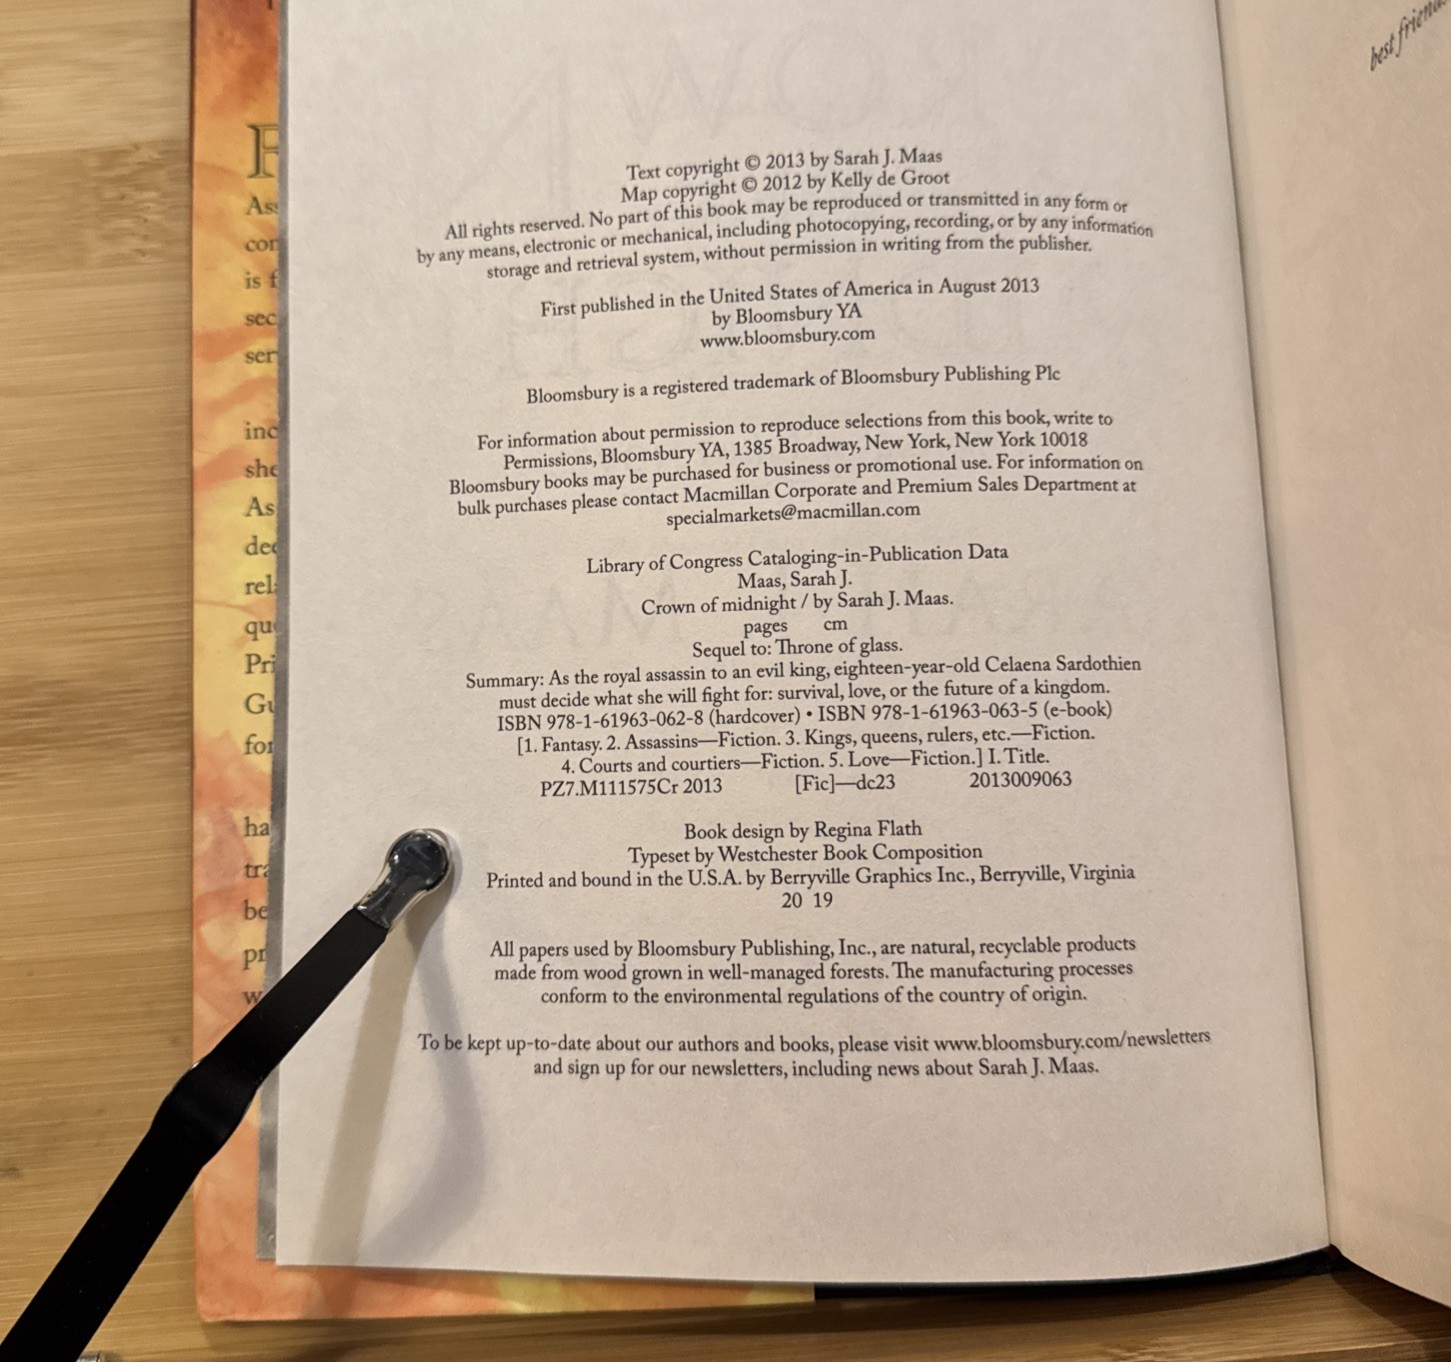 Text copyright © 2013 by Sarah J. Maas
Map copyright © 2012 by Kelly de Groot
All rights reserved. No part of this book may be reproduced or transmitted in any form or
by any means, electronic or mechanical, including photocopying, recording, or by any information
storage and retrieval system, without permission in writing from the publisher.
First published in the United States of America in August 2013
by Bloomsbury YA
www.bloomsbury.com
Bloomsbury is a registered trademark of Bloomsbury Publishing Plc
For information about permission to reproduce selections from this book, write to
Permissions, Bloomsbury YA, 1385 Broadway, New York, New York 10018
Bloomsbury books may be purchased for business or promotional use. For information on
bulk purchases please contact Macmillan Corporate and Premium Sales Department at
specialmarkets@macmillan.com
Library of Congress Cataloging-in-Publication Data
Maas, Sarah J.
Crown of midnight / by Sarah J. Maas.
pages cm
Sequel to: Throne of glass.
Summary: As the royal assassin to an evil king, eighteen-year-old Celaena Sardothien
must decide what she will fight for: survival, love, or the future of a kingdom.
ISBN 978-1-61963-062-8 (hardcover) • ISBN 978-1-61963-063-5 (e-book)
[1. Fantasy. 2. Assassins—Fiction. 3. Kings, queens, rulers, etc.—Fiction.
4. Courts and courtiers—Fiction. 5. Love—Fiction.] I. Title.
PZ7.M111575Cr 2013 [Fic]—dc23 2013009063
Book design by Regina Flath
Typeset by Westchester Book Composition
Printed and bound in the U.S.A. by Berryville Graphics Inc., Berryville, Virginia
20 19
All papers used by Bloomsbury Publishing, Inc., are natural, recyclable products
made from wood grown in well-managed forests. The manufacturing processes
conform to the environmental regulations of the country of origin.
To be kept up-to-date about our authors and books, please visit www.bloomsbury.com/newsletters
and sign up for our newsletters, including news about Sarah J. Maas.
best
is